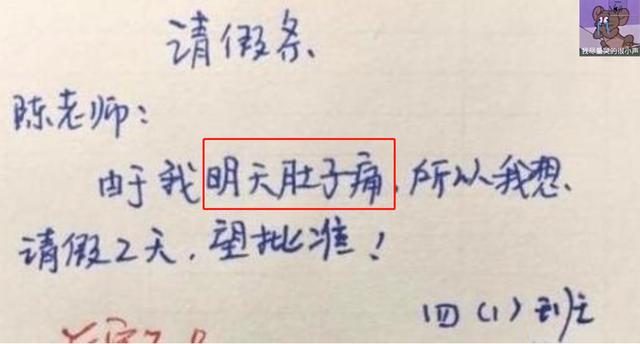 请假条
我尽量哭的很小声
陈老师：
由于我明天肚子痛，所以我想
请假2天，望批准！
四（1）班